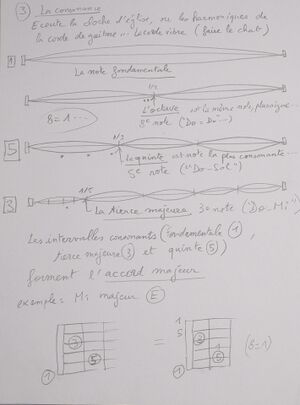 ③ La consonance
Ecoute la cloche d'église, ou les harmoniques de
la corde de guitare... La corde vibre (faire le chat)
1
La note fondamentale
1/2
L'octave est la même note, plus aigue...
8=1...
8e note ("Do = Do"...)
1/3
5
La quinte est note la plus consonante...
5e note ("Do-Sol")
1/5
3
La tierce majeure 3e note ("Do-Mi")
Les intervalles consonants (fondamentale ①,
tierce majeure ③ et quinte ⑤)
forment l'accord majeur
exemple = Mi majeur Ⓔ
1
5
③
⑤
①
=
③
1
⑤
①
(8=1)